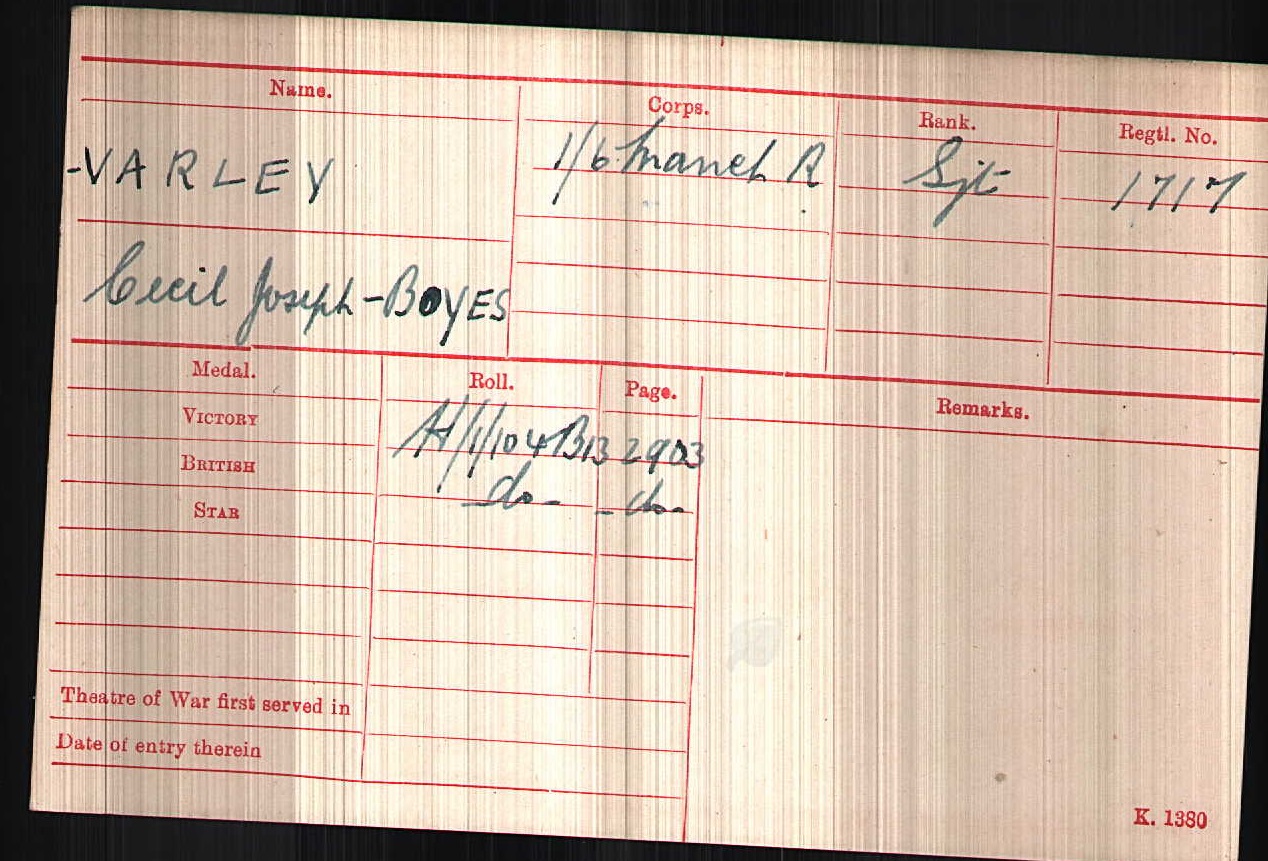 Name. Corps. Rank. Regtl. No.
-VARLEY 1/6 Manch R Sjt 1717
Cecil Joseph-BOYES
Medal. Roll. Page. Remarks.
VICTORY H/1/104B13 2903
BRITISH -do- -do-
STAR
Theatre of War first served in
Date of entry therein
K. 1380